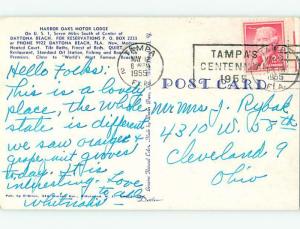 HARBOR OAKS MOTOR LODGE
On U. S. 1, Seven Miles South of Center of
DAYTONA BEACH. FOR RESERVATIONS P.O. BOX 2233
or PHONE 9922 DAYTONA BEACH, FLA.
Heated Court. Tile Baths, Finest of Beds. QUIET.
Restaurant, Standard Oil Station, Fishing and Boating
Close to World's Most Famous Beach
TAMPA
NOV
5 PM
1955
FLA.
TAMPA'S
CENTENNIAL
1955
Hello Folks:
This is a lovely
place the whole
state is different
we saw oranges &
grapefruit groves
today. It is
interesting. Love
to all
POST CARD
Mr Mrs J Rybak
4310 W. 58th
Cleveland 9
Ohio